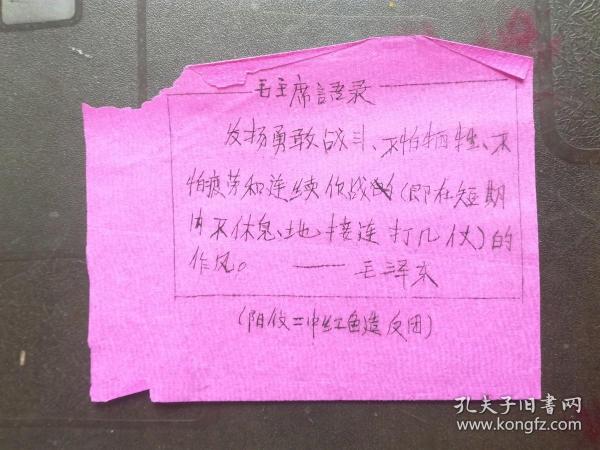 毛主席語录
发扬勇敢战斗、不怕牺牲、不
怕疲劳和连续作战（即在短期
内不休息地接连打几仗）的
作风。——毛泽东
（阳攸二中红色造反团）
孔夫子旧書网
www.kongfz.com